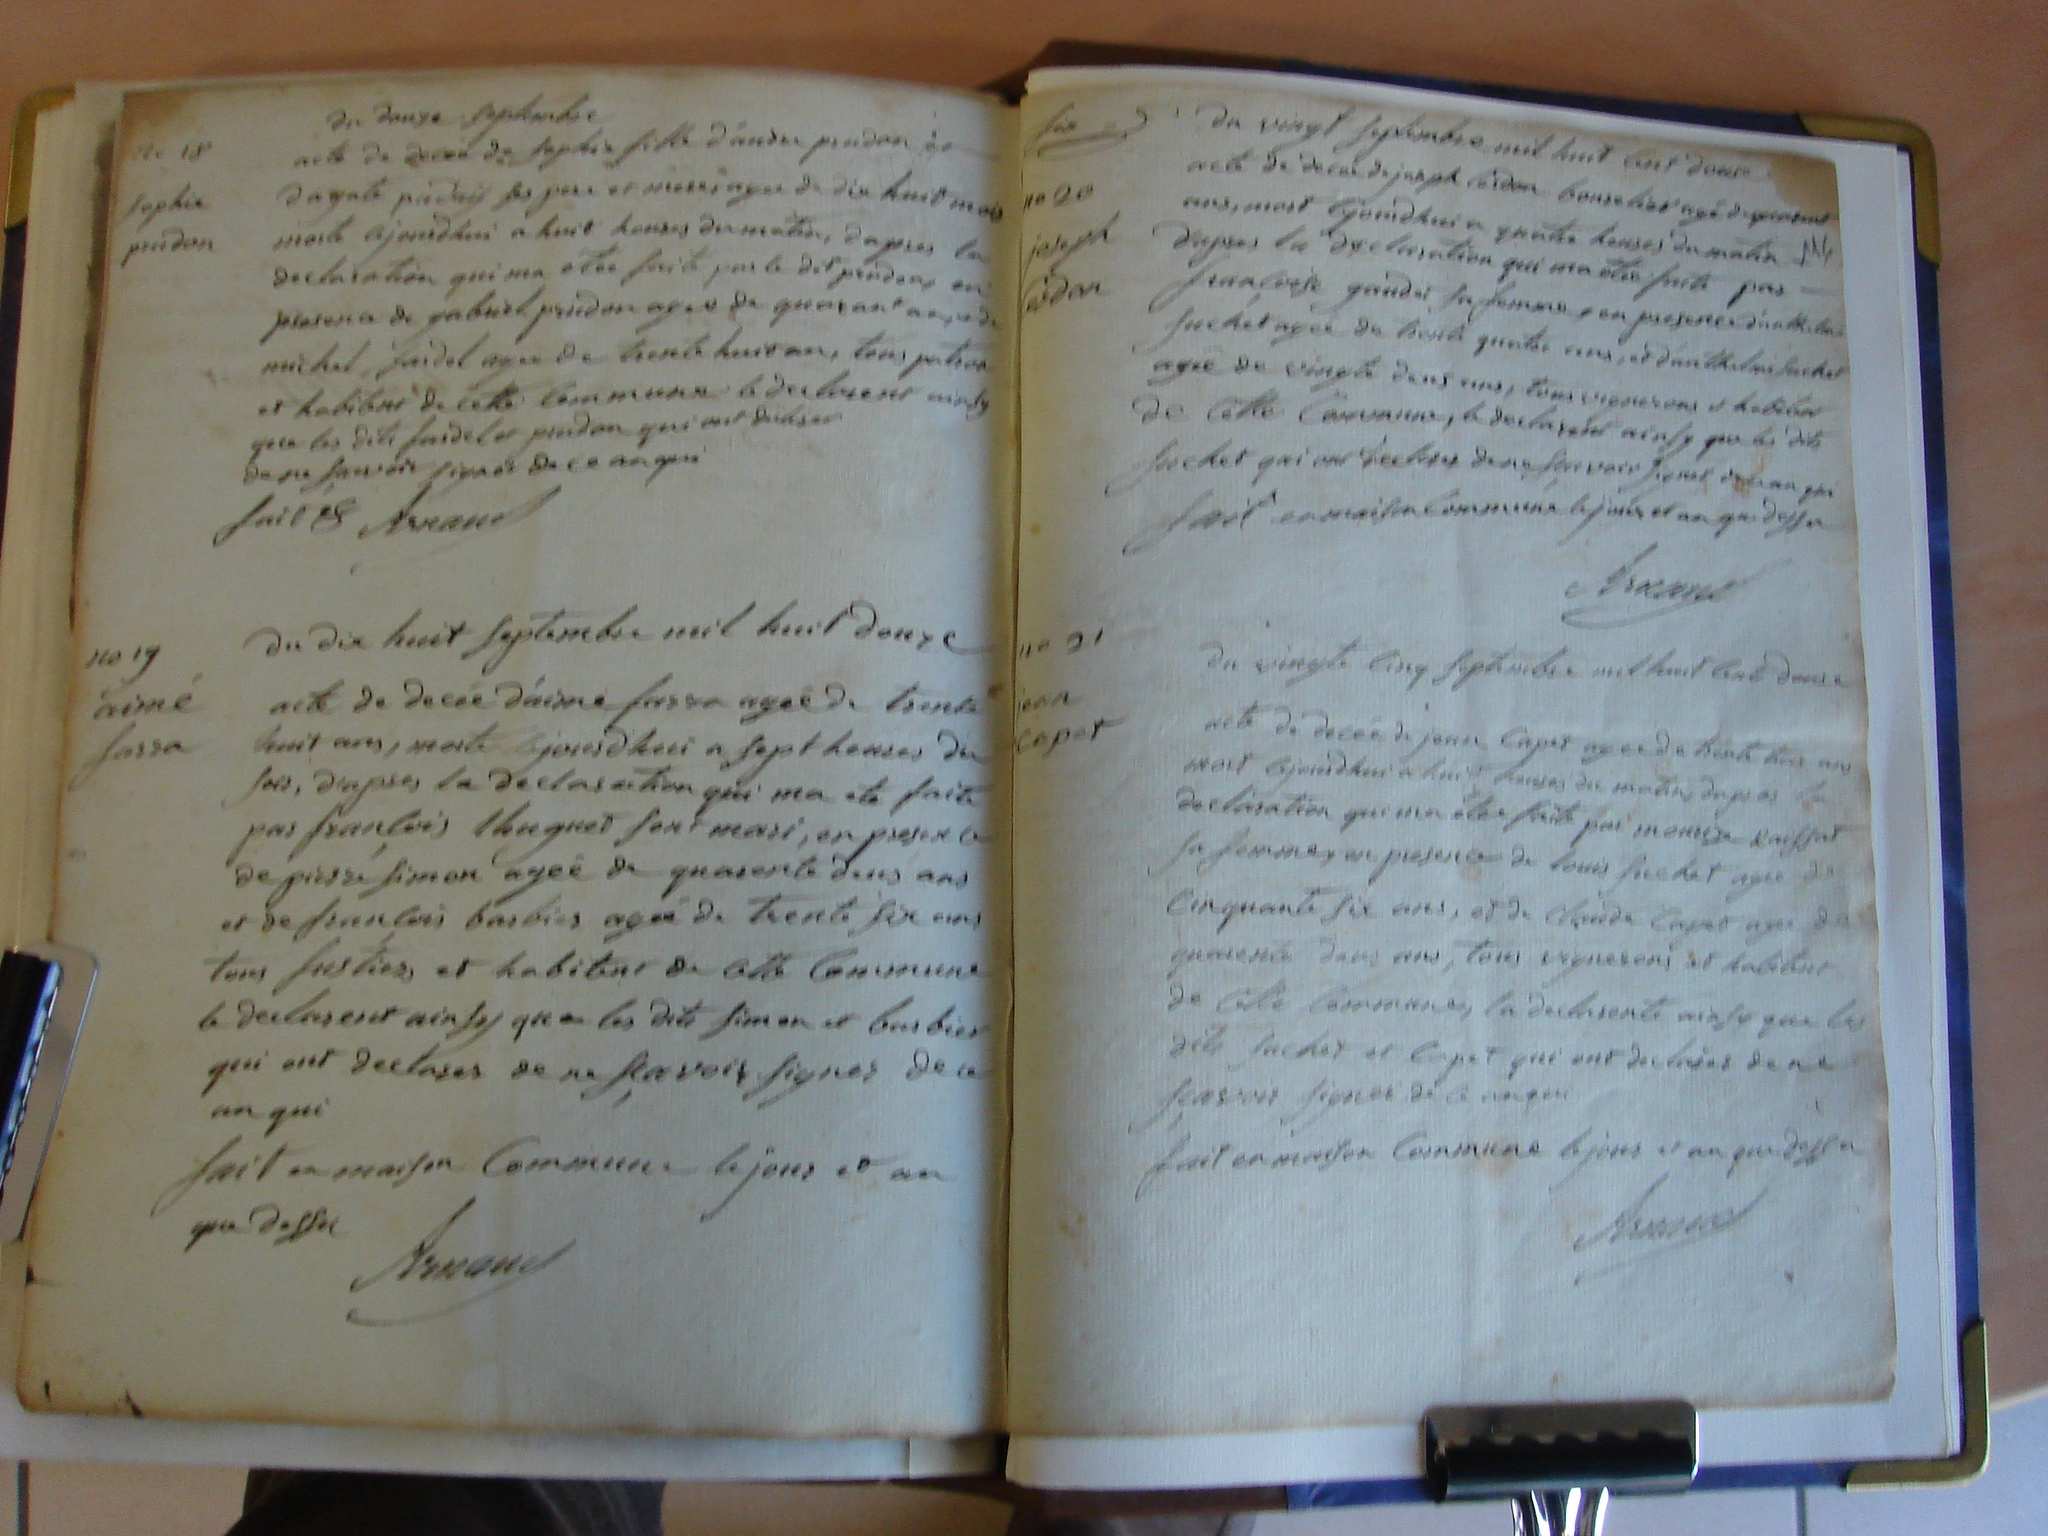 du douze septembre
no 18
acte de decée de sophie fille d'andre prudon et
sophie
prudon
dagate ses pere et mere, agee de dix huit mois
morte cejourdhui a huit heures du matin, dapres la
declaration qui ma etée faite par le dit prudon, en
presence de gabriel prudon agee de quarant ans, et de
michel jaidet agee de trente huit ans, tous
et habitent de cette Commune le declarent ainsy
que les dits et prudon qui ont declarer
de ne sçavoir signer de ce anqui
fait & Arnaud
du dix huit septembre mil huit douze
no 19
aimé
farra
acte de decée d'aime farra ageé de trente
huit ans, morte cejourdhui a sept heures du
soir, d'apres la declaration qui ma ete faite
par françois huguet sont mari, en presence
de pierre simon ageé de quarente deus ans
et de françois barbier ageé de trente six ans
tous et habitent de cette Commune
le declarent ainsy que les dits simon et barbier
qui ont declarer de ne sçavoir signer de ce
an qui
fait en maison Commune le jour et an
que dessu
Arnaud
du vingt septembre mil huit cent douse
no 20
joseph
acte de decée de joseph agé de quarent
ans, mort cejourdhui a quatre heures du matin
dapres la declaration qui ma etée faite par
françoise sa femme, en presence danthelme
suchet agée de trente quatre ans, et danthelme suchet
agée de vingte deus ans, tous vignerons et habitent
de cette Commune, le declarent ainsy que les dits
suchet qui ont declarer de ne sçavoir signer de ce an qui
fait en maison Commune le jour et an que dessu
Arnaud
no 21
jean
Capet
du vingte Cinq septembre mil huit Cent douse
acte de decée de jean Capet agee de trente trois ans
mort cejourdhui a huit heures du matin, dapres la
declaration qui ma etée faite par
sa femme, en presence de louis suchet agee de
Cinquante six ans, et de Claude Capet agee de
quarente deus ans, tous vignerons et habitent
de cette Commune, la declarente ainsy que les
dits suchet et Capet qui ont declarer de ne
sçavoir signer de ce anqui
fait en maison Commune le jour et an que dessu
Arnaud